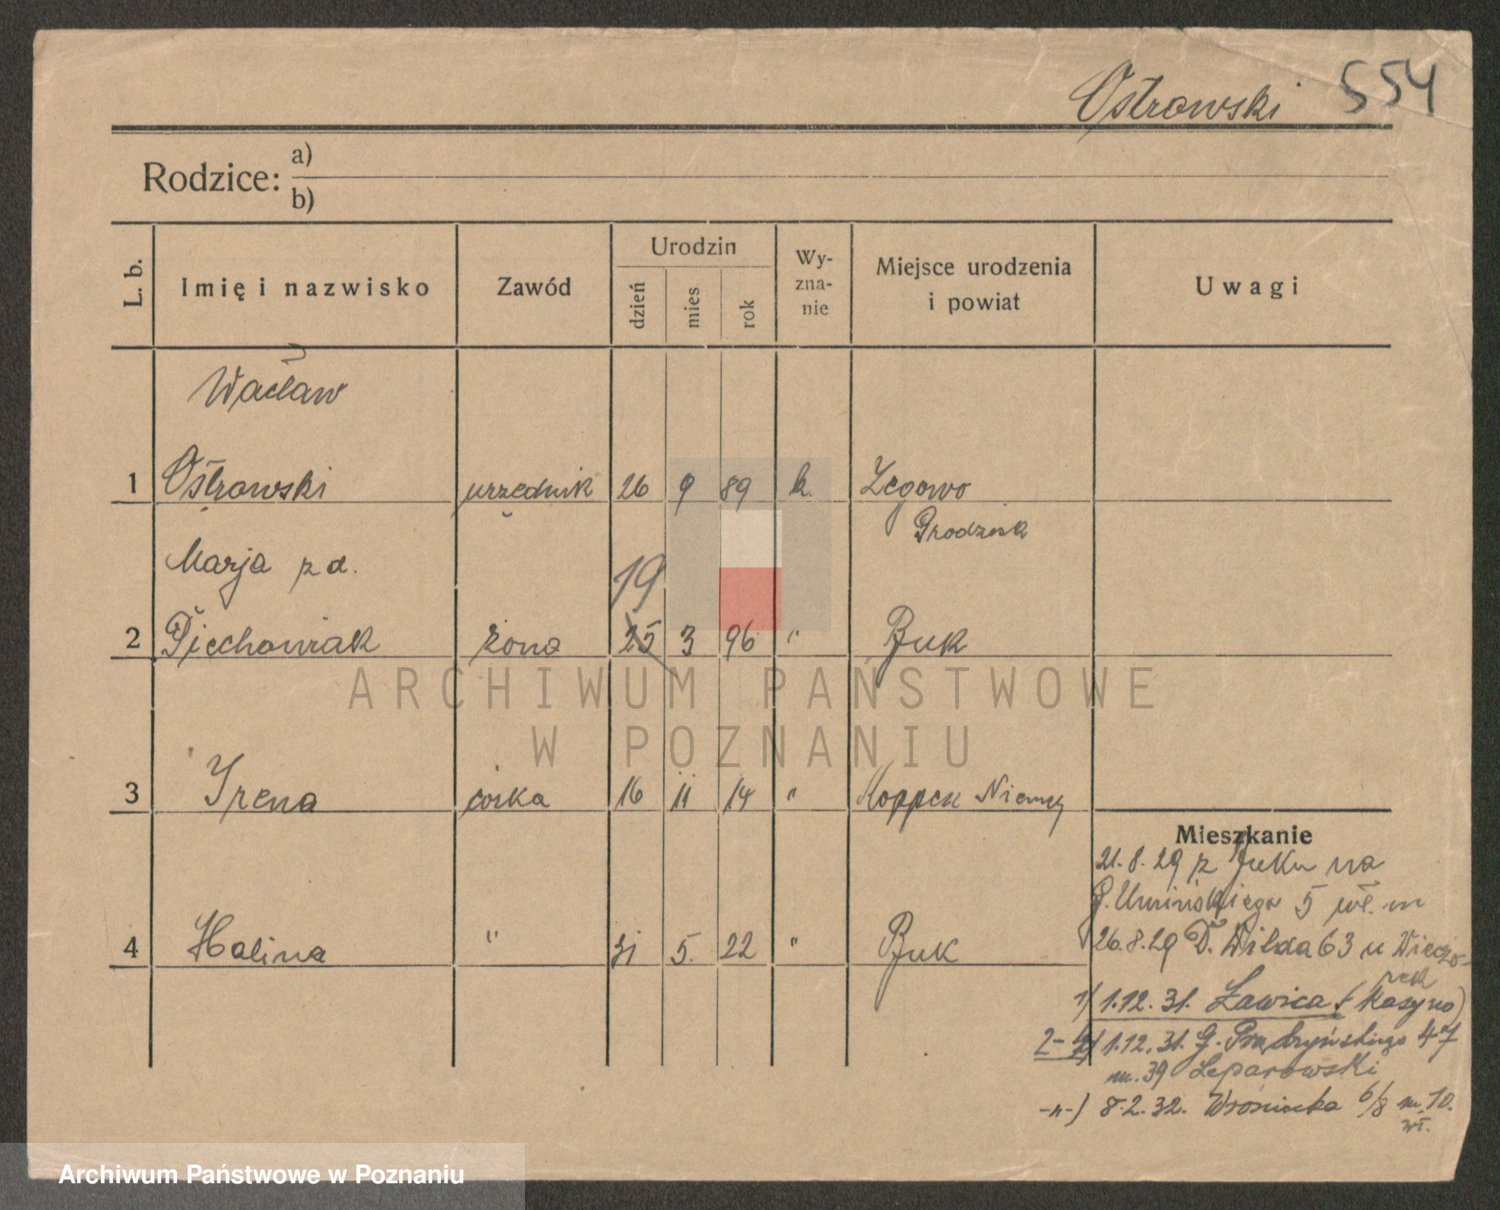 Ostrowski 554
Rodzice: a)
b)
L. b. Imię i nazwisko Zawód Urodzin dzień mies rok Wy-zna-nie Miejsce urodzenia i powiat Uwagi
Wacław
1 Ostrowski urzędnik 26 9 89 k. Zegowo
Grodzisk
Marja z d. 19
2 Piechowiak żona 25 3 96 " Buk
3 Irena córka 16 11 14 " Niemcy
4 Halina " 31 5. 22 " Buk
Mieszkanie
21.8.29 z Buku na
G. Umińskiego 5 wł. m
26.8.29 D. Wilda 63 u Wieczo-
rek
1) 1.12.31. Ławica (Kasyno)
2-4) 1.12.31. G. Prądzyńskiego 47
m. 39 Leparowski
-"-) 8.2.32. Wroniecka 6/8 m. 10.
wł.
ARCHIWUM PAŃSTWOWE
W POZNANIU
Archiwum Państwowe w Poznaniu